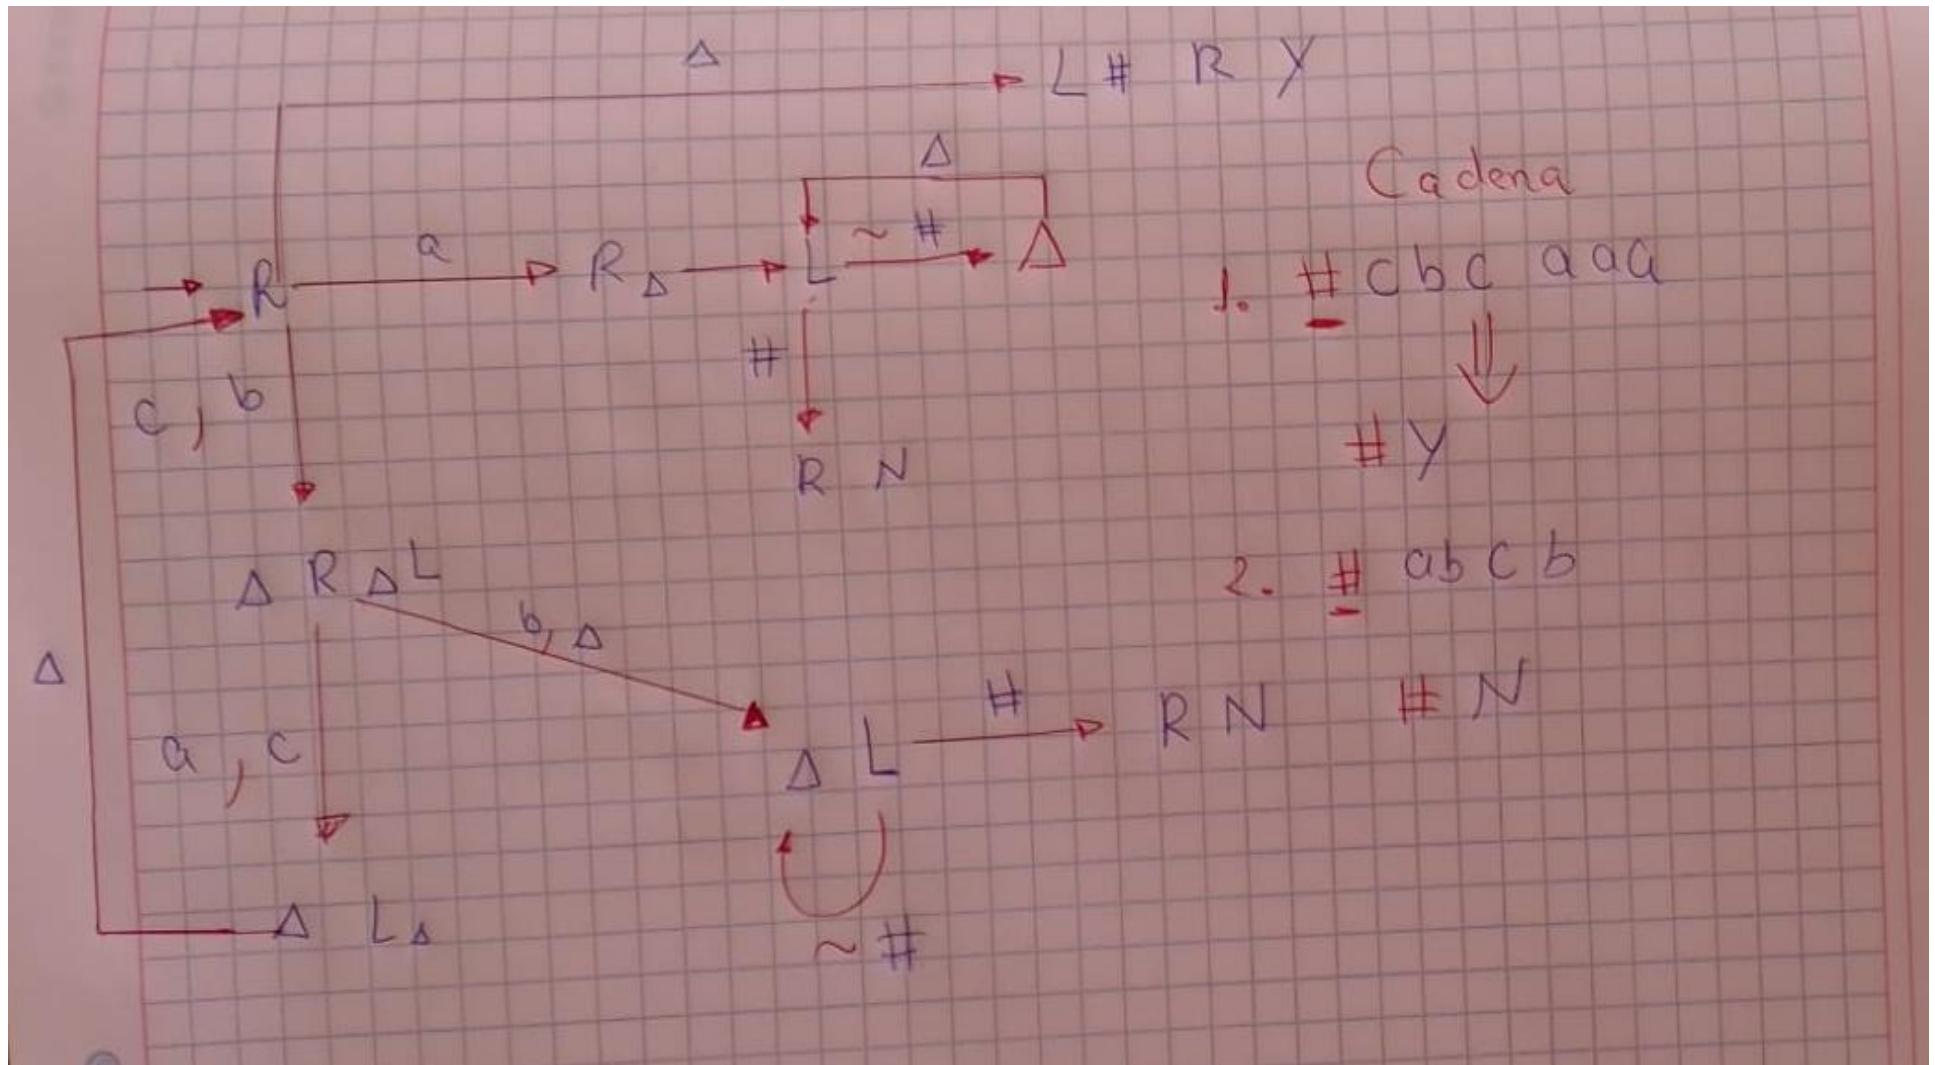 Δ
L # R Y
Δ
Cadena
R a R Δ L ~ # Δ
1. # c b c a a a
c, b
#
# Y
R N
Δ R Δ L
2. # a b c b
b, Δ
Δ
a, c
Δ L # R N
# N
Δ L Δ
~ #